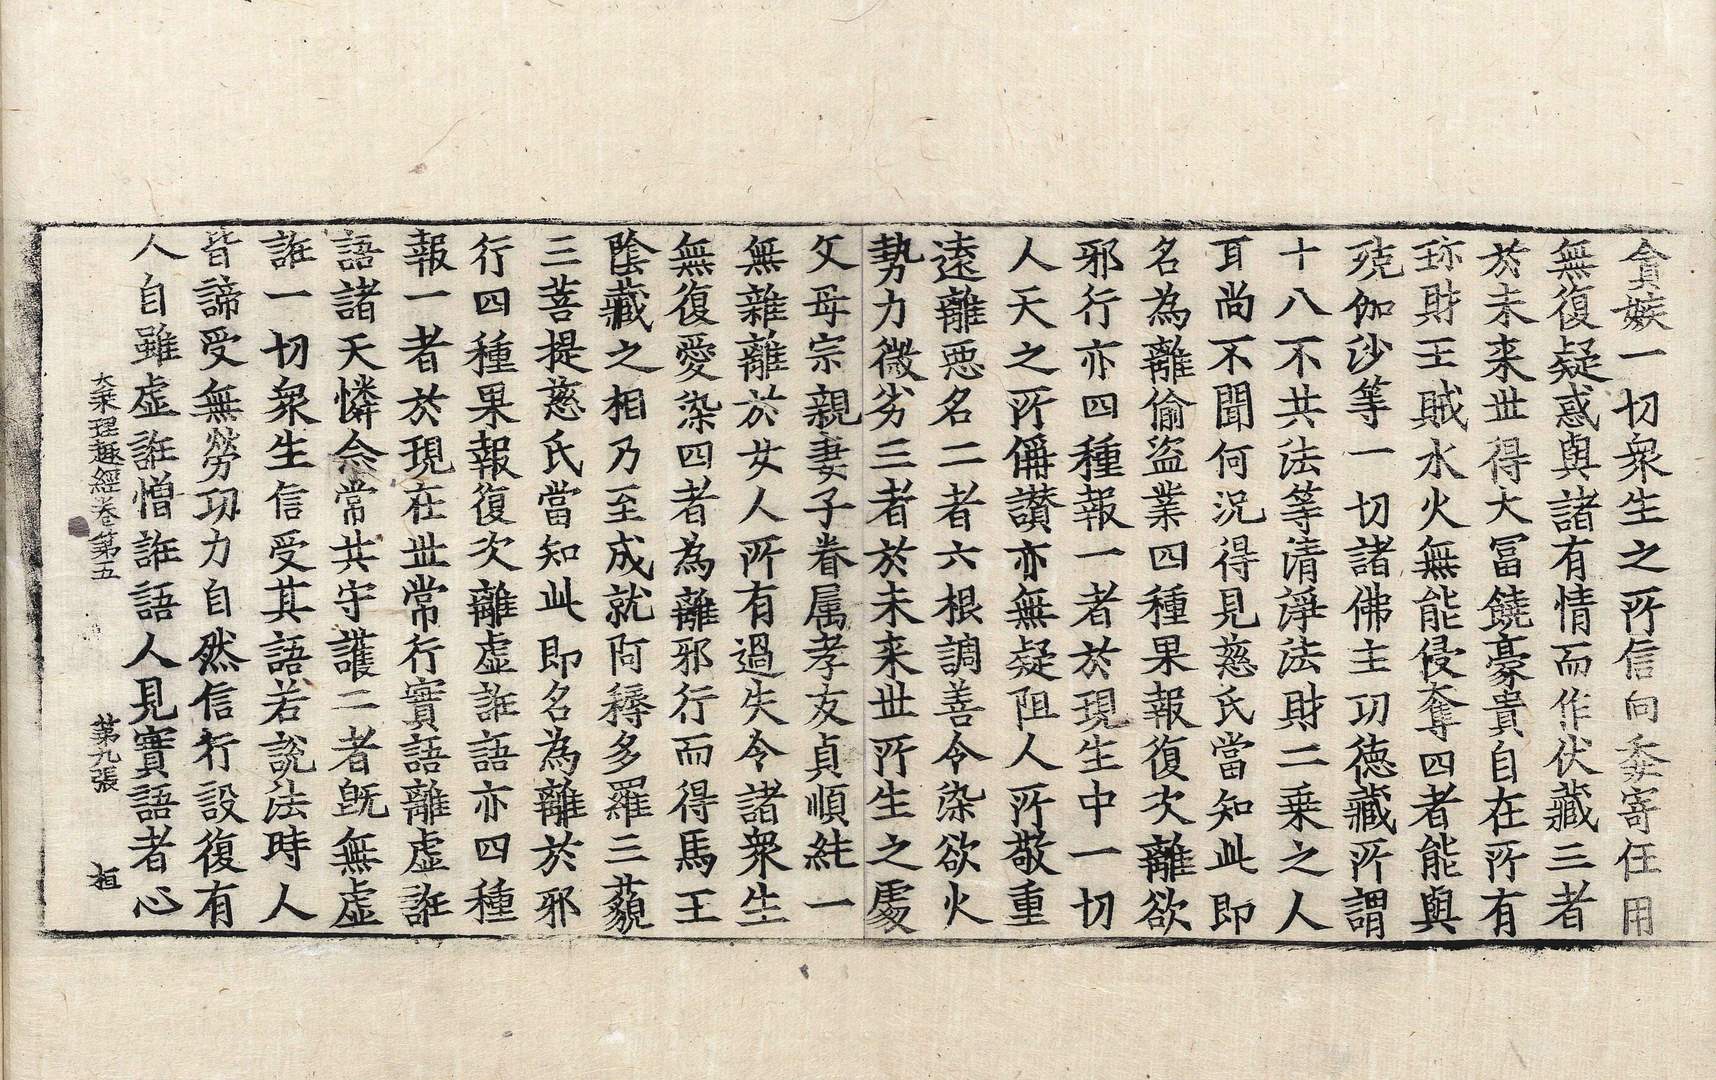 貪嫉一切衆生之所信向委寄任用
無復疑惑與諸有情而作伏藏三者
於未来丗得大冨饒豪貴自在所有
珎財王賊水火無能侵奪四者能與
殑伽沙等一切諸佛主功徳藏所謂
十八不共法等清淨法財二乗之人
耳尚不聞何況得見慈氏當知此即
名為離偷盗業四種果報復次離欲
邪行亦四種報一者於現生中一切
人天之所偁讃亦無疑阻人所敬重
遠離惡名二者六根調善令染欲火
勢力微劣三者於未来丗所生之處
父母宗親妻子眷属孝友貞順純一
無雜離於女人所有過失令諸衆生
無復愛染四者為離邪行而得馬王
陰藏之相乃至成就阿耨多羅三藐
三菩提慈氏當知此即名為離於邪
行四種果報復次離虚誑語亦四種
報一者於現在丗常行實語離虚誑
語諸天憐念常共守護二者旣無虚
誑一切衆生信受其語若説法時人
皆諦受無勞功力自然信行設復有
人自雖虚誑憎誑語人見實語者心
大乗理趣經卷第五 第九張 桓